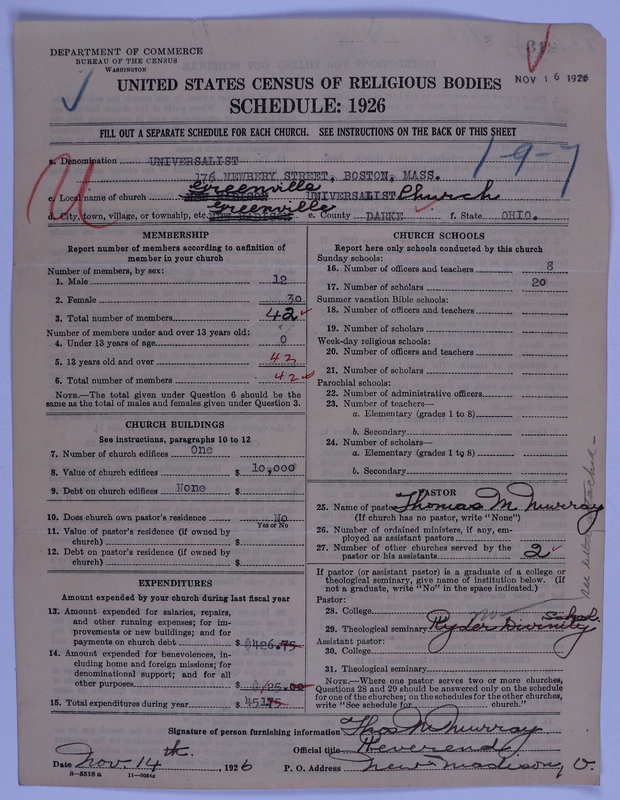 DEPARTMENT OF COMMERCE
BUREAU OF THE CENSUS
WASHINGTON
NOV 16 1926
UNITED STATES CENSUS OF RELIGIOUS BODIES
SCHEDULE: 1926
FILL OUT A SEPARATE SCHEDULE FOR EACH CHURCH. SEE INSTRUCTIONS ON THE BACK OF THIS SHEET
1-9-7
a. Denomination UNIVERSALIST
176 NEWBERY STREET, BOSTON, MASS.
c. Local name of church Greenville UNIVERSALIST Church
d. City, town, village, or township, etc. Greenville e. County DARKE f. State OHIO.
MEMBERSHIP
Report number of members according to definition of
member in your church
Number of members, by sex:
1. Male 12
2. Female 30
3. Total number of members 42
Number of members under and over 13 years old:
4. Under 13 years of age 0
5. 13 years old and over 42
6. Total number of members 42
NOTE.—The total given under Question 6 should be
same as the total of males and females given under Question 3.
CHURCH BUILDINGS
See instructions, paragraphs 10 to 12
7. Number of church edifices One
8. Value of church edifices $ 10,000
9. Debt on church edifices None $
10. Does church own pastor's residence No
Yes or No
11. Value of pastor's residence (if owned by
church) $
12. Debt on pastor's residence (if owned by
church) $
EXPENDITURES
Amount expended by your church during last fiscal year
13. Amount expended for salaries, repairs,
and other running expenses; for im-
provements or new buildings; and for
payments on church debt $ $426.75
14. Amount expended for benevolences, in-
cluding home and foreign missions; for
denominational support; and for all
other purposes $ $/25.00
15. Total expenditures during year $ 45175
CHURCH SCHOOLS
Report here only schools conducted by this church
Sunday schools:
16. Number of officers and teachers 8
17. Number of scholars 20
Summer vacation Bible schools:
18. Number of officers and teachers
19. Number of scholars
Week-day religious schools:
20. Number of officers and teachers
21. Number of scholars
Parochial schools:
22. Number of administrative officers
23. Number of teachers—
a. Elementary (grades 1 to 8)
b. Secondary
24. Number of scholars—
a. Elementary (grades 1 to 8)
b. Secondary
PASTOR
25. Name of pastor Thomas M Murray
(If church has no pastor, write "None")
26. Number of ordained ministers, if any, em-
ployed as assistant pastors
27. Number of other churches served by the
pastor or his assistants 2
If pastor (or assistant pastor) is a graduate of a college or
theological seminary, give name of institution below. (If
not a graduate, write "No" in the space indicated.)
Pastor:
28. College no
29. Theological seminary Ryder Divinity School.
Assistant pastor:
30. College
31. Theological seminary
NOTE.—Where one pastor serves two or more churches,
Questions 28 and 29 should be answered only on the schedule
for one of the churches; on the schedules for the other churches,
write "See schedule for church."
See letter attached
Signature of person furnishing information Thos M Murray
Official title Reverend
Date Nov. 14 th., 1926 P. O. Address New Madison, O.
8—5518 a